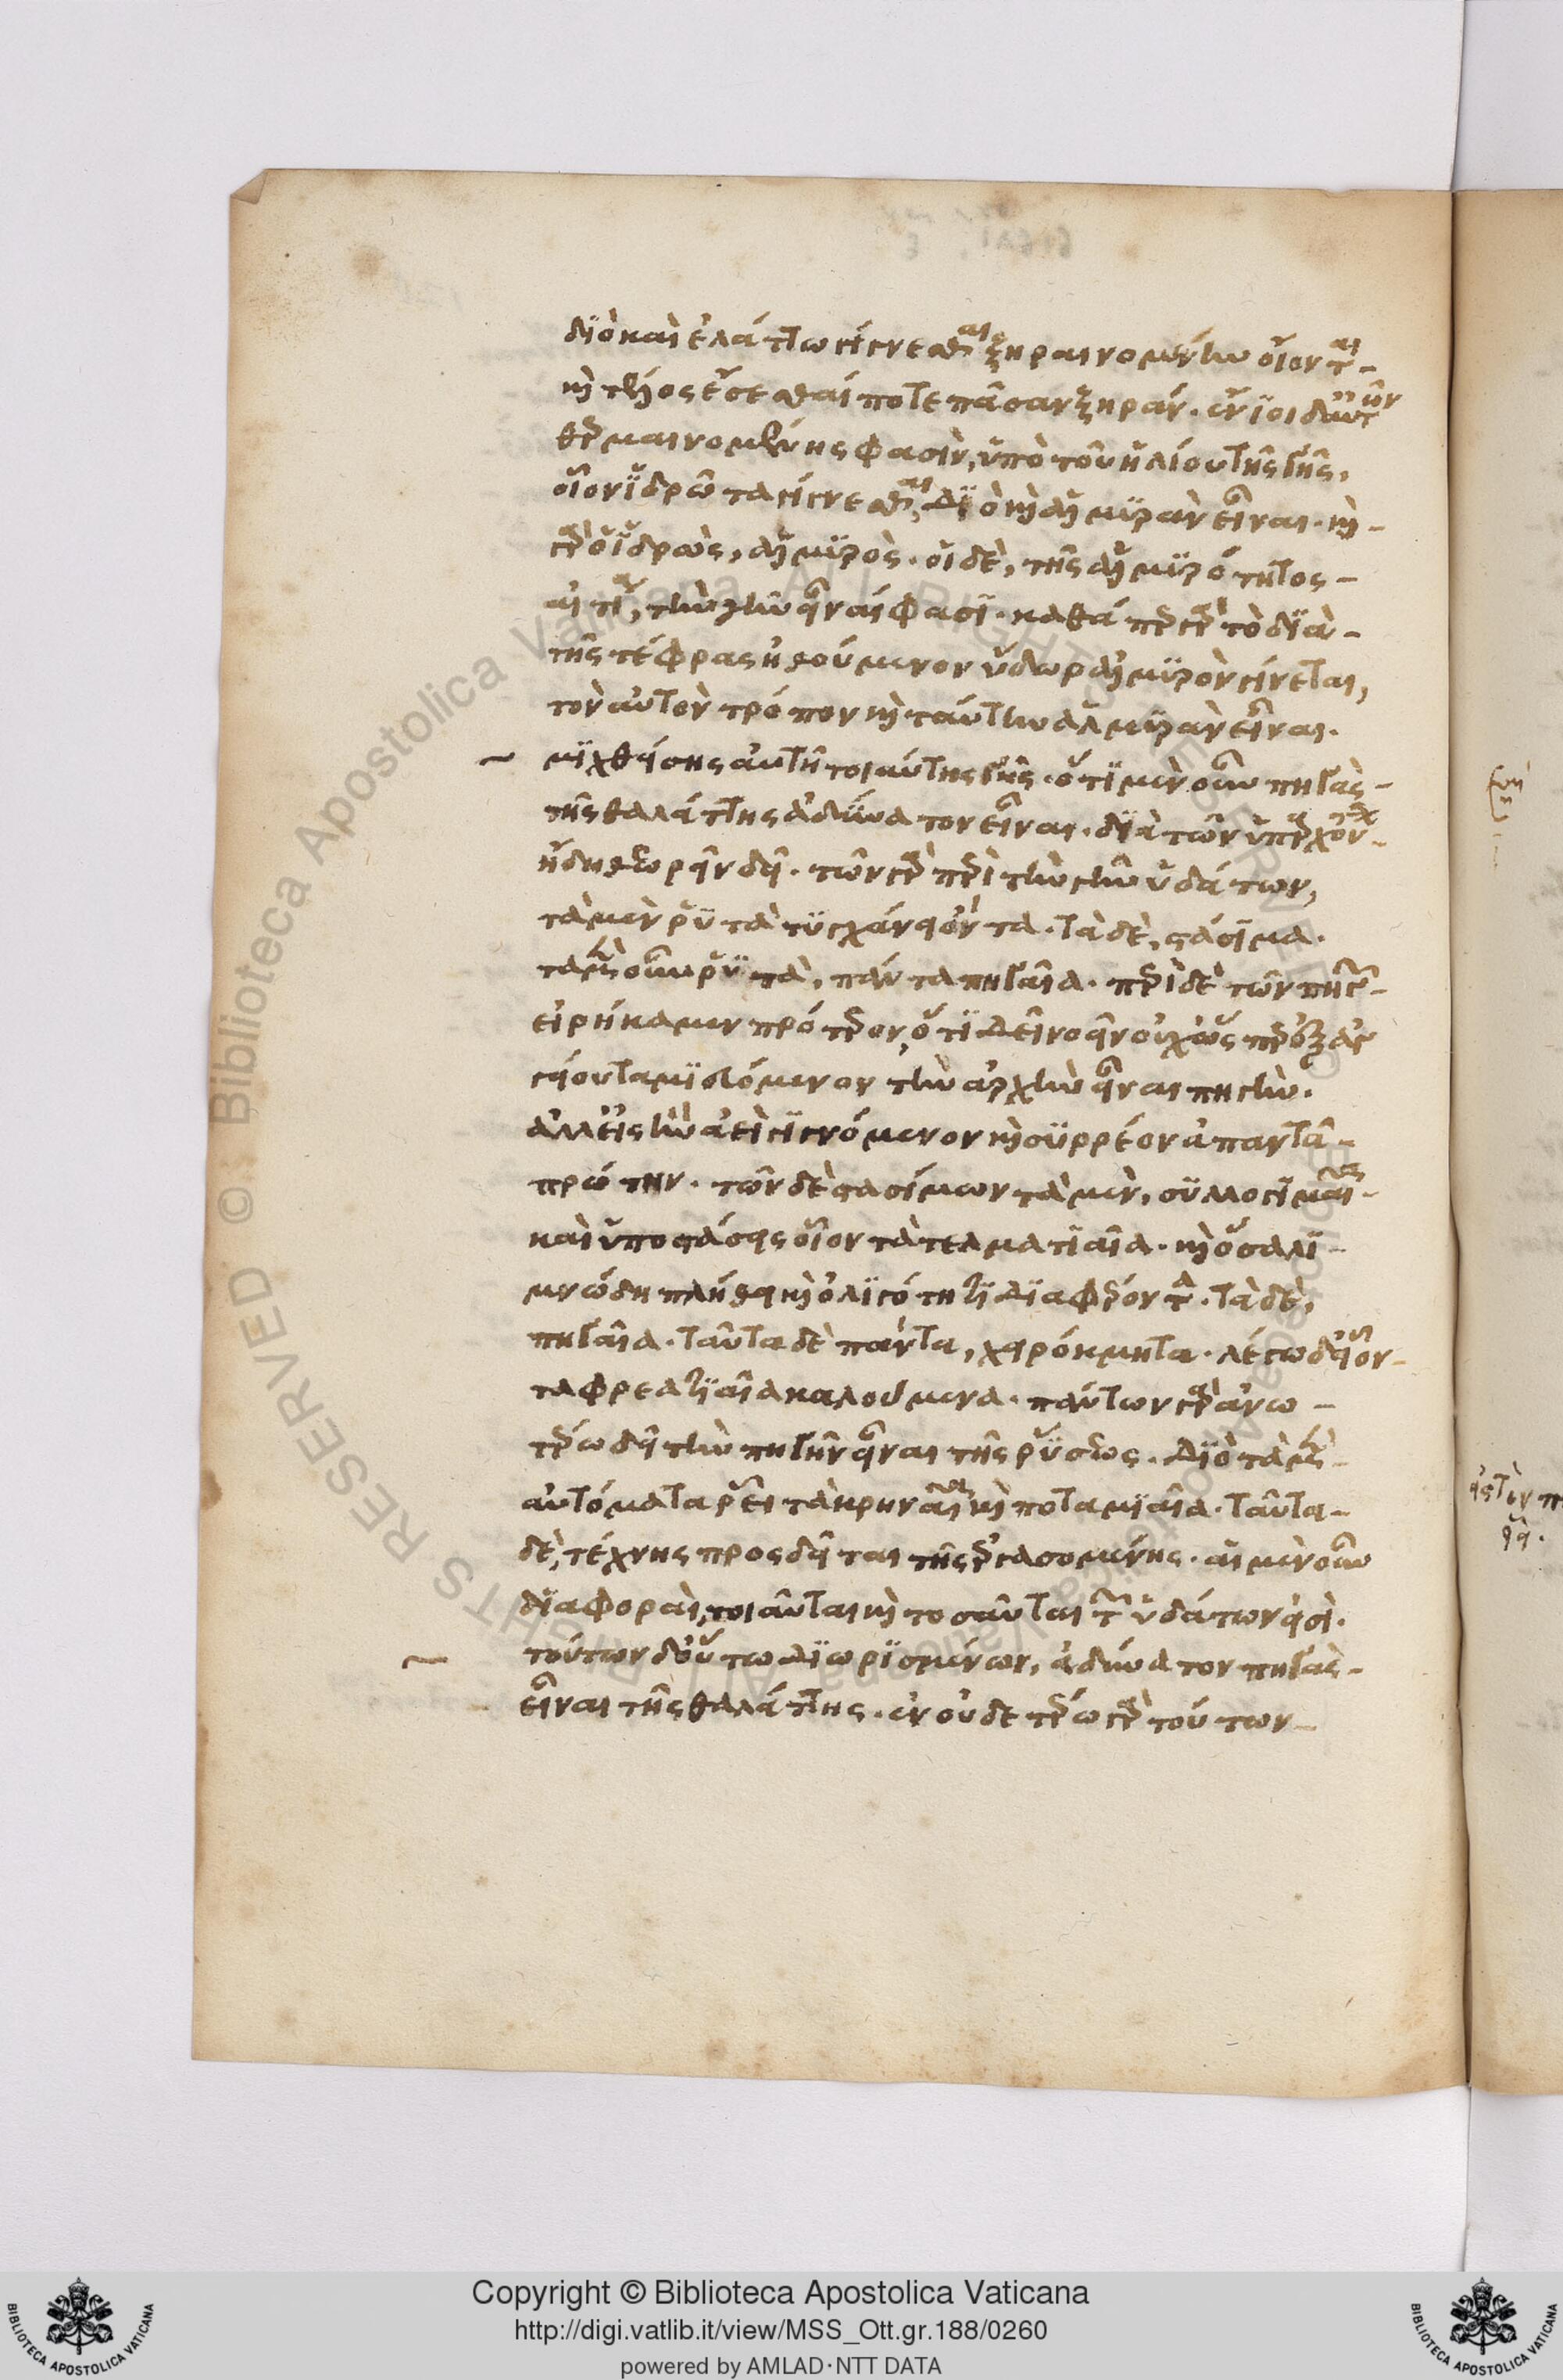 διὸ καὶ ἐλάττω γίγνεσθαι ξηραινομένην οἴονται
καὶ τέλος ἔσεσθαί ποτε πᾶσαν ξηράν. ἔνϊοι δ' αὐτῶν
θερμαινομένης φασὶν, ὑπὸ τοῦ ἡλίου τῆς γῆς,
οἷον ϊδρῶτα γίγνεσθαι, διὸ καὶ ἁλμυρὰν εἶναι. καὶ
γὰρ ὁ ϊδρὼς, ἁλμυρὸς. οἱ δὲ, τῆς ἁλμυρότητος
αἰτίαν, τὴν γῆν εἶναί φασϊ. καθάπερ γὰρ τὸ διὰ
τῆς τέφρας ἠθούμενον ὕδωρ ἁλμυρὸν γίνεται,
τὸν αὐτὸν τρόπον καὶ ταύτην ἁλμυρὰν εἶναι.
μιχθείσης αὐτῆ τοιαύτης γῆς. ὅτι μὲν οὖν πηγὰς
τῆς θαλάττης ἀδύνατον εἶναι. διὰ τῶν ὑπαρχόντων
ἤδη θεωρεῖν δεῖ. τῶν γὰρ περὶ τὴν γῆν ὑδάτων,
τὰ μὲν ῥυτὰ τυγχάνει ὄντα. τὰ δὲ, στάσιμα.
τὰ μὲν οὖν ῥυτὰ, πάντα πηγαῖα. περὶ δὲ τῶν πηγῶν
εἰρήκαμεν πρότερον, ὅτι δεῖ νοεῖν οὐχ ὥσπερ ἐξ ἀγ
γείου ταμιευόμενον τὴν ἀρχὴν εἶναι πηγήν.
ἀλλ' εἰς ἣν ἀεὶ γιγνόμενον καὶ συρρέον ἀπαντᾶ
πρώτην. τῶν δὲ στασίμων τὰ μὲν, συλλογιμαῖα
καὶ ὑποστάσεις οἷον τὰ τελματιαῖα. καὶ ὅσα λι
μνώδη πλήθει καὶ ὀλιγότητι διαφέροντα. τὰ δὲ,
πηγαῖα. ταῦτα δὲ πάντα, χειρόκμητα. λέγω δ' οἷον
τὰ φρεατιαῖα καλούμενα. πάντων γὰρ ἀνω
τέρω δεῖ τὴν πηγὴν εἶναι τῆς ῥύσεως. διὸ τὰ μὲν
αὐτόματα ῥεῖ τὰ κρηναῖα καὶ ποταμιαῖα. ταῦτα
δὲ, τέχνης προσδεῖται τῆς ἐργασομένης. αἱ μὲν οὖν
διαφοραὶ, τοιαῦται καὶ τοσαῦται τῶν ὑδάτων εἰσὶ.
τούτων δ' οὕτω διωρισμένων, ἀδύνατον πηγὰς
εἶναι τῆς θαλάττης. ἐν οὐδετέρω γὰρ τούτων
Copyright © Biblioteca Apostolica Vaticana
http://digi.vatlib.it/view/MSS_Ott.gr.188/0260
powered by AMLAD·NTT DATA